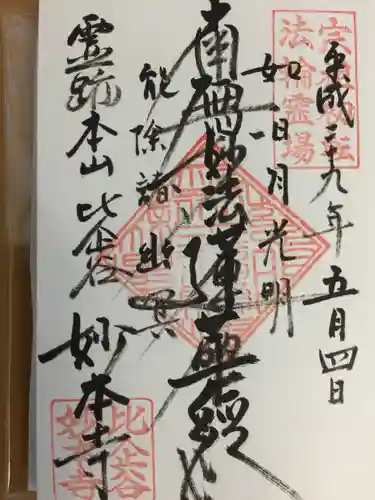 平成二十九年五月四日
如日月光明
南無妙法蓮華経
能除諸幽冥
霊跡本山 比企谷 妙本寺
法輪霊場
比企谷
妙本寺